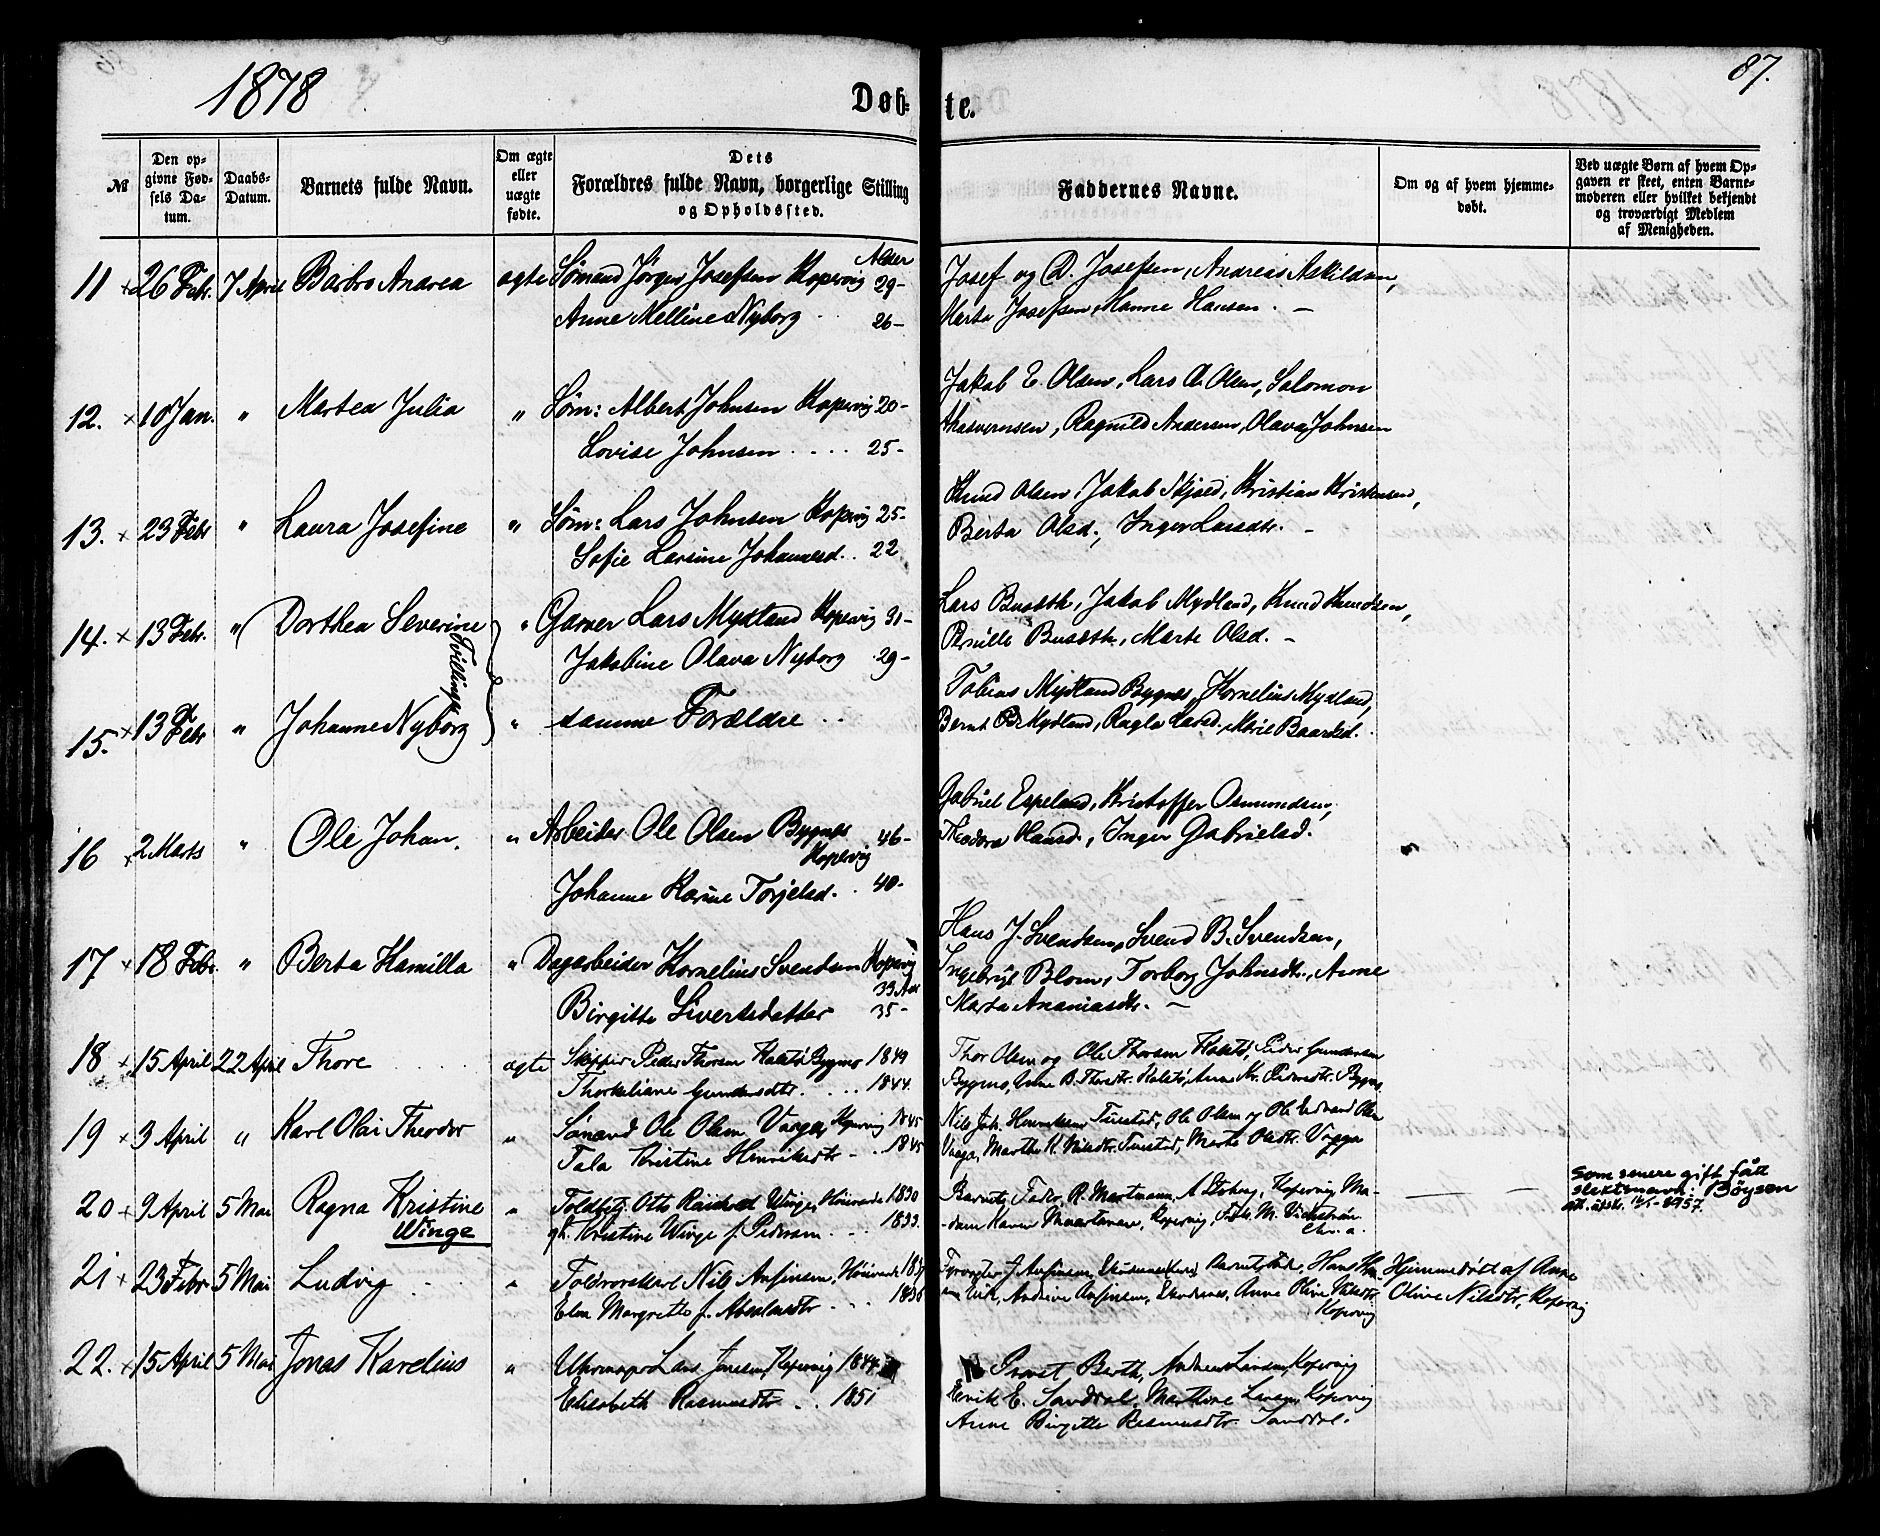 1878
Døb-
te.
87.
№
Den op-
givne Fød-
sels Da-
tum.
Daabs-
Datum.
Barnets fulde Navn.
Om ægte
eller
uægte
fødte.
Dets
Forældres fulde Navn, borgerlige Stilling
og Opholdssted.
Faddernes Navne.
Om og af hvem hjemme-
døbt.
Ved uægte Børn af hvem Op-
gaven er skeet, enten Barne-
moderen eller hvilket bekjendt
og troværdigt Medlem
af Menigheden.
Alder
11 × 26 Febr. 7 April Barbro Andrea ægte Sømand Jörgen Josefsen Kopervig 29-
Anne Melline Nyborg 26-
Josef og D. Josefsen, Andreas Askildsen,
Marta Josefsen, Hansen. —
12. × 10 Jan. " Martea Julia " Søm: Albert Johnsen Kopervig 20-
Lovise Johnsen .... 25-
Jakob E. Olsen, Lars Olsen, Salomon
Ragnild Andersen, Olava Johnsen
13. × 23 Febr " Laura Josefine " Søm: Lars Johnsen Kopervig 25-
Sofie Larsine Johannesd.. 22
Knud Olsen, Jakob Kristian Kristensen,
Berta Olsd., Inger Larsdtr. —
14. × 13 Febr. " Dorthea Severine " Garver Lars Mydland Kopervig 31-
Tvillinger
Jakobine Olava Nyborg 29-
Lars Jakob Mydland, Knud Knudsen,
Pernille Marte Olsd. —
15. × 13 Febr " Johanne Nyborg " samme Forældre ..
Tobias Mydland Bygnes, Kornelius Mydland,
Bernt Mydland, Ragla Larsd. Marie Baardsd.
16 × 2 Marts " Ole Johan. " Arbeider Ole Olsen Bygnes 46-
Kopervig
Johanne Karine Torjelsd. . 40-
Gabriel Espeland, Kristoffer Osmundsen,
Theodora Hansd., Inger Gabrielsd.
17 × 18 Febr. " Berta Kamilla " Dagarbeider Kornelius Svendsen Kopervig
33 Aar
Birgitte Sivertsdatter 35-
Hans J. Svendsen, Svend B. Svendsen,
Ingebrigt Blom, Torborg Johnsdtr., Anne
Marta Ananiasdtr. —
18 × 15 April 22 April Thore ægte Skipper Peder Thorsen Bygnes 1849
Thorkiliane Gundersdtr. .... 1844.
Thor Olsen og Ole Thorsen Peder Gundersen
Bygnes, Anne B. Thorsdtr. Anne Pedersdtr. Bygnes
19 × 3 April " Karl Olai Theodor " Sømand Ole Olsen Kopervig 1845
Tala Kristine Henriksdtr 1845
Nils Joh. Henriksen Ole Olsen og Ole Edvard Olsen
Marthe K. Nilsdtr. Marte Olsdtr.
20 × 9 April 5 Mai Ragna Kristine " Otto Winge, 1830
Winge
Kristine Winge f. Pedersen ... 1833.
Barnets Fader, R. Martmann, Kopervig, Ma-
dam Karen Kopervig,
— —
som senere gift fått
slektsnavn: Bøysen
21 × 23 Febr 5 Mai Ludvig " Toldroerskarl Nils 18
Elen Margrethe f. 1836
Andrine Anne Olive Nilsdtr
Kopervig
Hjemmedøbt af Anne
Olive Nilsdtr, Kopervig
22. × 15 April 5 Mai Jonas Karelius " Uhrmager Lars Kopervig 1844
Elisabeth Rasmusdtr .. 1851
Provst Berth, Andreas Larsen, Kopervig
Eirik E. Sanddal, Marthine Larsen, Kopervig
Anne Birgitte Rasmusdtr. Sanddal.